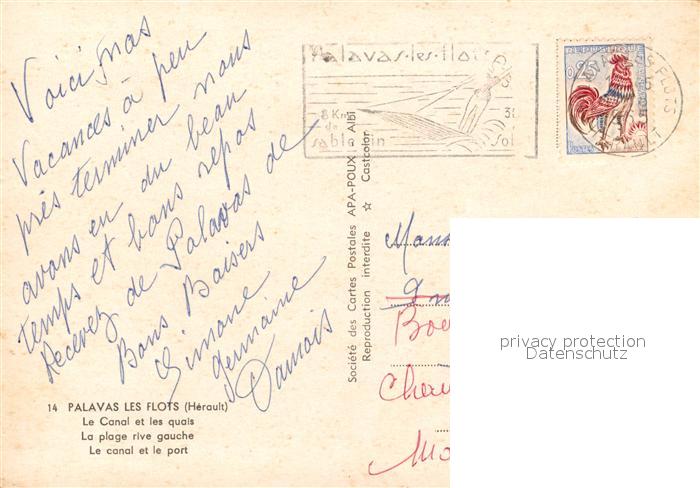 Voici nos
Vacances à peu
près terminer nous
avons eu du beau
temps et bons repos
Recevez de Palavas de
Bons Baisers
Simone
germaine
Damois
14 PALAVAS LES FLOTS (Hérault)
Le Canal et les quais
La plage rive gauche
Le canal et le port
Société des Cartes Postales APA-POUX Albi
Reproduction interdite ☆ Castcolor
Palavas-les-flots
8 Km
de
sable fin
0,25
privacy protection
Datenschutz